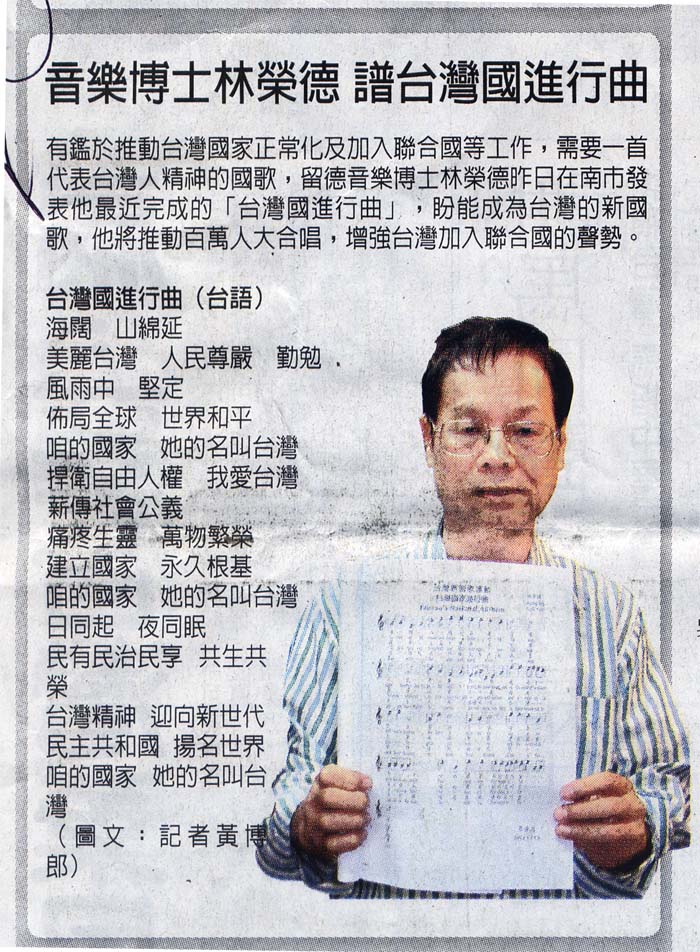 音樂博士林榮德 譜台灣國進行曲
有鑑於推動台灣國家正常化及加入聯合國等工作，需要一首
代表台灣人精神的國歌，留德音樂博士林榮德昨日在南市發
表他最近完成的「台灣國進行曲」，盼能成為台灣的新國
歌，他將推動百萬人大合唱，增強台灣加入聯合國的聲勢。
台灣國進行曲（台語）
海闊　山綿延
美麗台灣　人民尊嚴　勤勉
風雨中　堅定
佈局全球　世界和平
咱的國家　她的名叫台灣
捍衛自由人權　我愛台灣
薪傳社會公義
痛疼生靈　萬物繁榮
建立國家　永久根基
咱的國家　她的名叫台灣
日同起　夜同眠
民有民治民享　共生共
榮
台灣精神　迎向新世代
民主共和國　揚名世界
咱的國家　她的名叫台
灣
（圖文：記者黃博
郎）